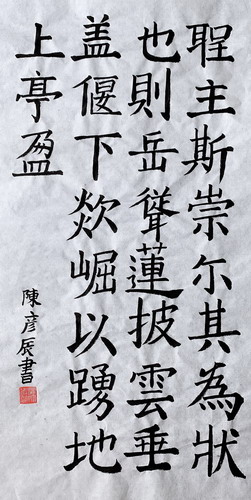 聖主斯崇尔其為狀
也則岳聳蓮披雲垂
盖偃下欻崛以踴地
上亭盈
陳彦辰書